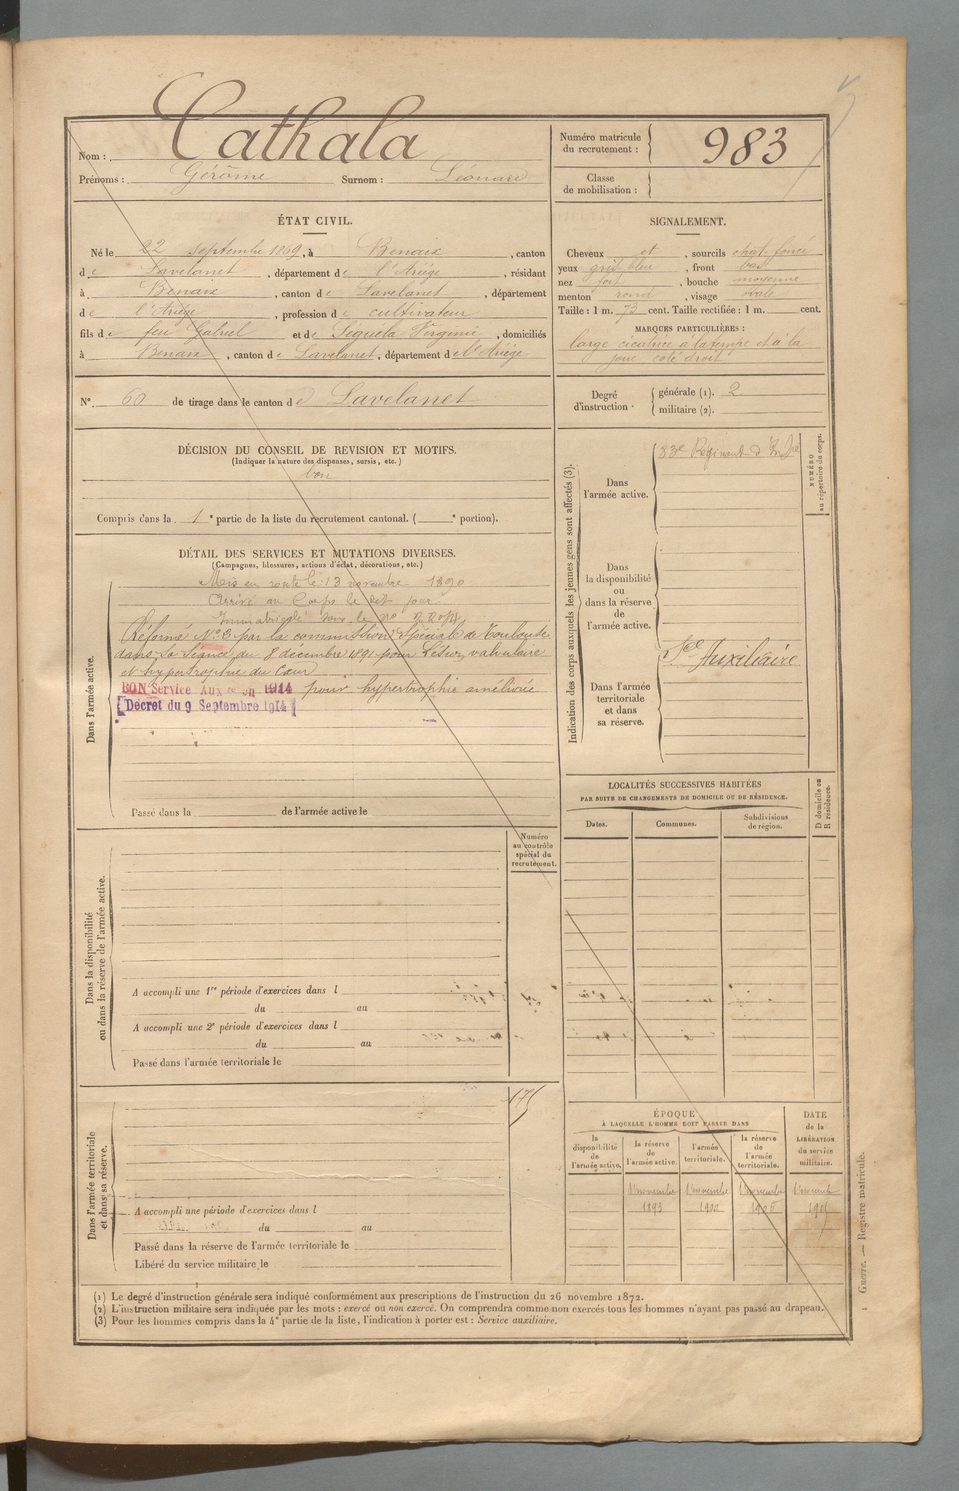 Nom : Cathala
Prénoms : Gérôme Surnom : Léonard
Numéro matricule du recrutement : 983
Classe de mobilisation :
ÉTAT CIVIL.
Né le 22 septembre 1869, à Benaix, canton
de Lavelanet, département de l'Ariège, résidant
à Benaix, canton de Lavelanet, département
de l'Ariège, profession de cultivateur
fils de feu Gabriel et de Seguela Virginie, domiciliés
à Benaix, canton de Lavelanet, département de l'Ariège
N° 60 de tirage dans le canton de Lavelanet
SIGNALEMENT.
Cheveux et, sourcils chat. foncé
yeux gris bleu, front bas
nez fort, bouche moyenne
menton rond, visage ovale
Taille : 1 m. 73 cent. Taille rectifiée : 1 m. cent.
MARQUES PARTICULIÈRES :
large cicatrice à la tempe et à la
joue côté droit
Degré d'instruction. générale (1). 2
militaire (2).
DÉCISION DU CONSEIL DE REVISION ET MOTIFS.
(Indiquer la nature des dispenses, sursis, etc.)
bon
Compris dans la 1e partie de la liste du recrutement cantonal. ( e portion).
DÉTAIL DES SERVICES ET MUTATIONS DIVERSES.
(Campagnes, blessures, actions d'éclat, décorations, etc.)
Dans l'armée active.
Mis en route le 13 novembre 1890
Arrivé au Corps le dit jour
Immatriculé sous le no
Réformé No 2 par la commission spéciale de Toulouse
dans sa séance du 8 décembre 1891 pour Lésion valvulaire
et hypertrophie du Cœur
BON Service Aux re en 1914 pour hypertrophie améliorée
Décret du 9 Septembre 1914
Passé dans la de l'armée active le
Indication des corps auxquels les jeunes gens sont affectés (3).
Dans l'armée active.
83e Régiment d'Inf ie
NUMÉRO au répertoire du corps.
Dans la disponibilité ou dans la réserve de l'armée active.
Sce Auxiliaire
Dans l'armée territoriale et dans sa réserve.
LOCALITÉS SUCCESSIVES HABITÉES
PAR SUITE DE CHANGEMENTS DE DOMICILE OU DE RÉSIDENCE.
Dates. Communes. Subdivisions de région. D domicile ou R résidence.
Numéro au contrôle spécial du recrutement.
Dans la disponibilité ou dans la réserve de l'armée active.
A accompli une 1re période d'exercices dans l
du au
A accompli une 2e période d'exercices dans l
du au
Passé dans l'armée territoriale le
175
Dans l'armée territoriale et dans sa réserve.
A accompli une période d'exercices dans l
du au
Passé dans la réserve de l'armée territoriale le
Libéré du service militaire le
ÉPOQUE
À LAQUELLE L'HOMME DOIT PASSER DANS
DATE de la LIBÉRATION du service militaire.
la disponibilité de l'armée active.
la réserve de l'armée active.
l'armée territoriale.
la réserve de l'armée territoriale.
1 novembre 1 novembre 1 novembre 1 novemb
1893 1900 1906
(1) Le degré d'instruction générale sera indiqué conformément aux prescriptions de l'instruction du 26 novembre 1872.
(2) L'instruction militaire sera indiquée par les mots : exercé ou non exercé. On comprendra comme non exercés tous les hommes n'ayant pas passé au drapeau.
(3) Pour les hommes compris dans la 4e partie de la liste, l'indication à porter est : Service auxiliaire.
1 Guerre. — Registre matricule.